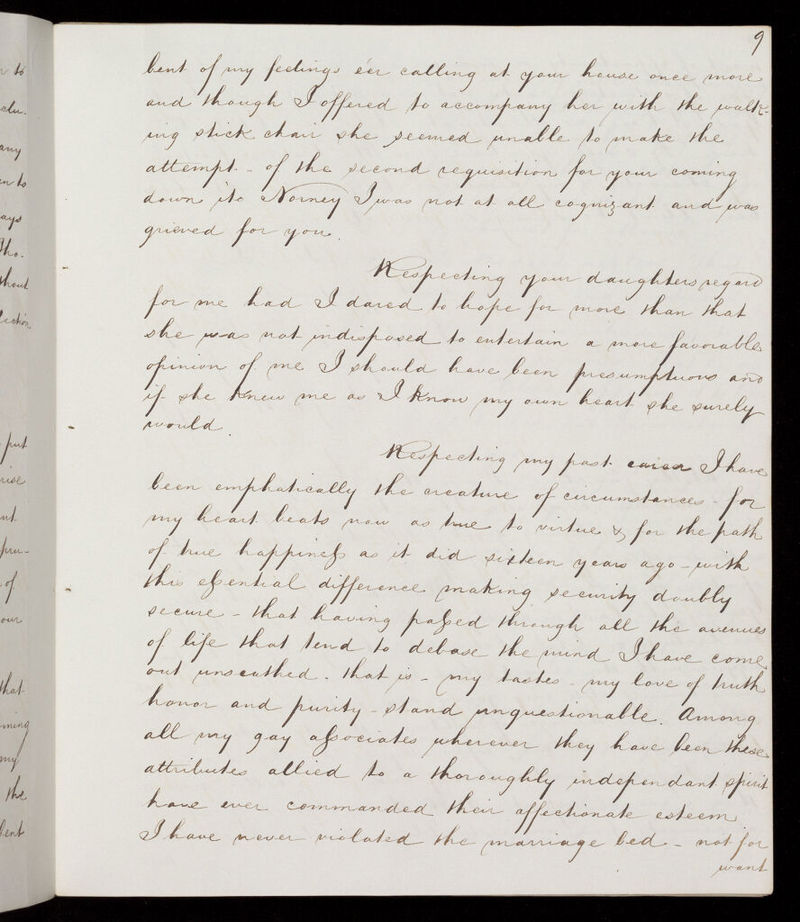 9
bent of my feelings e'er calling at your house once more
and though I offered to accompany her with the walk-
ing stick chair she seemed unable to make the
attempt - of the second requisition for your coming
down to Norney I was not at all cognizant and was
grieved for you.
Respecting your daughters regard
for me had I dared to hope for more than that
she was not indisposed to entertain a more favorable
opinion of me I should have been presumptuous and
if she knew me as I know my own heart she surely
would.
Respecting my past I have
been emphatically the creature of circumstances - for
my heart beats now as true to virtue & for the path
of true happiness as it did sixteen years ago - with
this essential difference making security doubly
secure - that having passed through all the avenues
of life that tend to debase the mind I have come
out unscathed. that is - my tastes - my love of truth
honor and purity - stand unquestionable. Among
all my gay associates wherever they have been these
attributes allied to a thoroughly independant spirit
have ever commanded their affectionate esteem
I have never violated the marriage bed - not for
want
to
clu-
any
ays
Tho.
put
rise
of
our
that
ming
my
the
bent